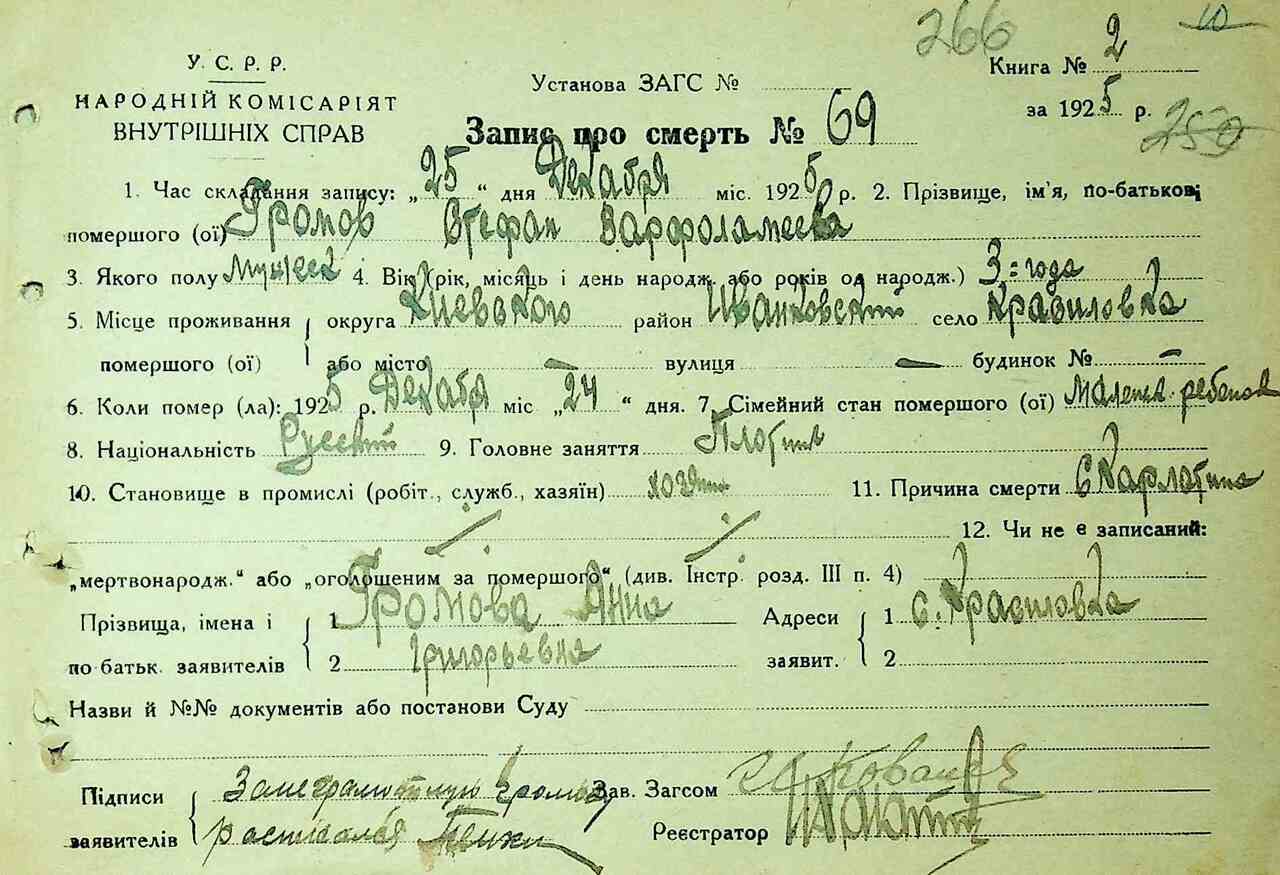 266 10
У. С. Р. Р.
НАРОДНІЙ КОМІСАРІЯТ
ВНУТРІШНІХ СПРАВ
Установа ЗАГС №
Книга № 2
за 1925 р.
259
Запис про смерть № 69
1. Час складання запису: „25“ дня Декабря міс. 1925 р. 2. Прізвище, ім'я, по-батькові
помершого (ої) Громов Стефан Варфоламеева
3. Якого полу Мужеск 4. Вік (рік, місяць і день народж. або років од народж.) 3-года
5. Місце проживання округа Киевского район Иванковский село Красиловка
помершого (ої) або місто — вулиця — будинок № —
6. Коли помер (ла): 1925 р. Декабря міс „24“ дня. 7. Сімейний стан помершого (ої) Малень. ребенок
8. Національність Русский 9. Головне заняття Плотник
10. Становище в промислі (робіт., служб., хазяїн) хозяин 11. Причина смерти Скарлатина
12. Чи не є записаний:
„мертвонародж.“ або „оголошеним за помершого“ (див. Інстр. розд. III п. 4)
Прізвища, імена і 1 Громова Анна Адреси 1 с. Красиловка
по батьк. заявителів 2 Григорьевна заявит. 2
Назви й №№ документів або постанови Суду
Підписи За неграмотную Громову Зав. Загсом
заявителів расписался Реєстратор